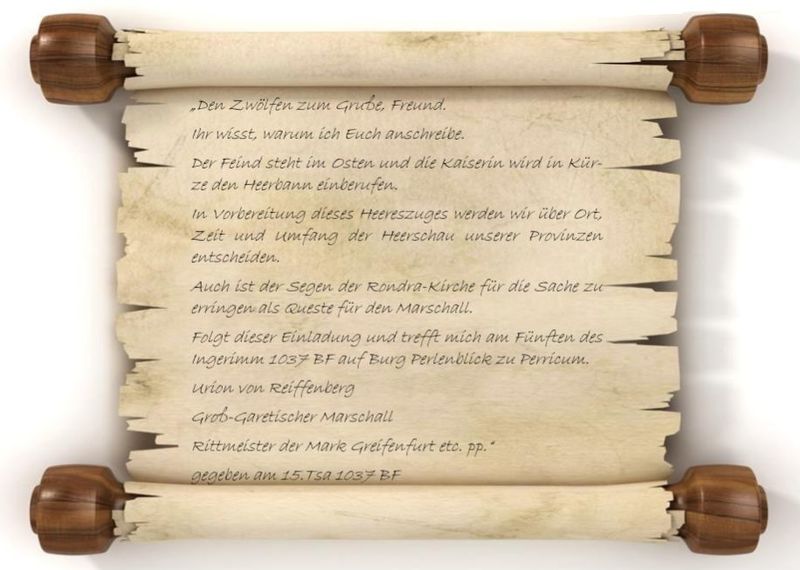 „Den Zwölfen zum Gruße, Freund.
Ihr wisst, warum ich Euch anschreibe.
Der Feind steht im Osten und die Kaiserin wird in Kür-
ze den Heerbann einberufen.
In Vorbereitung dieses Heereszuges werden wir über Ort,
Zeit und Umfang der Heerschau unserer Provinzen
entscheiden.
Auch ist der Segen der Rondra-Kirche für die Sache zu
erringen als Queste für den Marschall.
Folgt dieser Einladung und trefft mich am Fünften des
Ingerimm 1037 BF auf Burg Perlenblick zu Perricum.
Urion von Reiffenberg
Groß-Garetischer Marschall
Rittmeister der Mark Greifenfurt etc. pp.“
gegeben am 15.Tsa 1037 BF